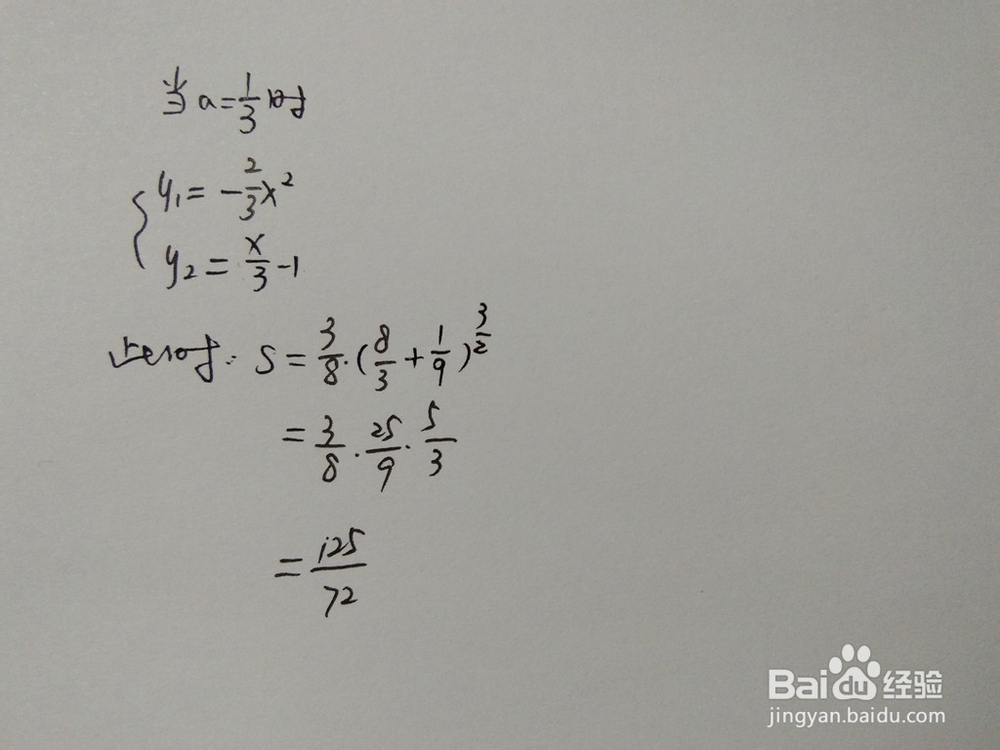 当a=1/3时
y₁=-2/3x²
y₂=x/3-1
此时: S=3/8·(8/3+1/9)^(3/2)
=3/8·25/9·5/3
=125/72
Baidu经验
jingyan.baidu.com